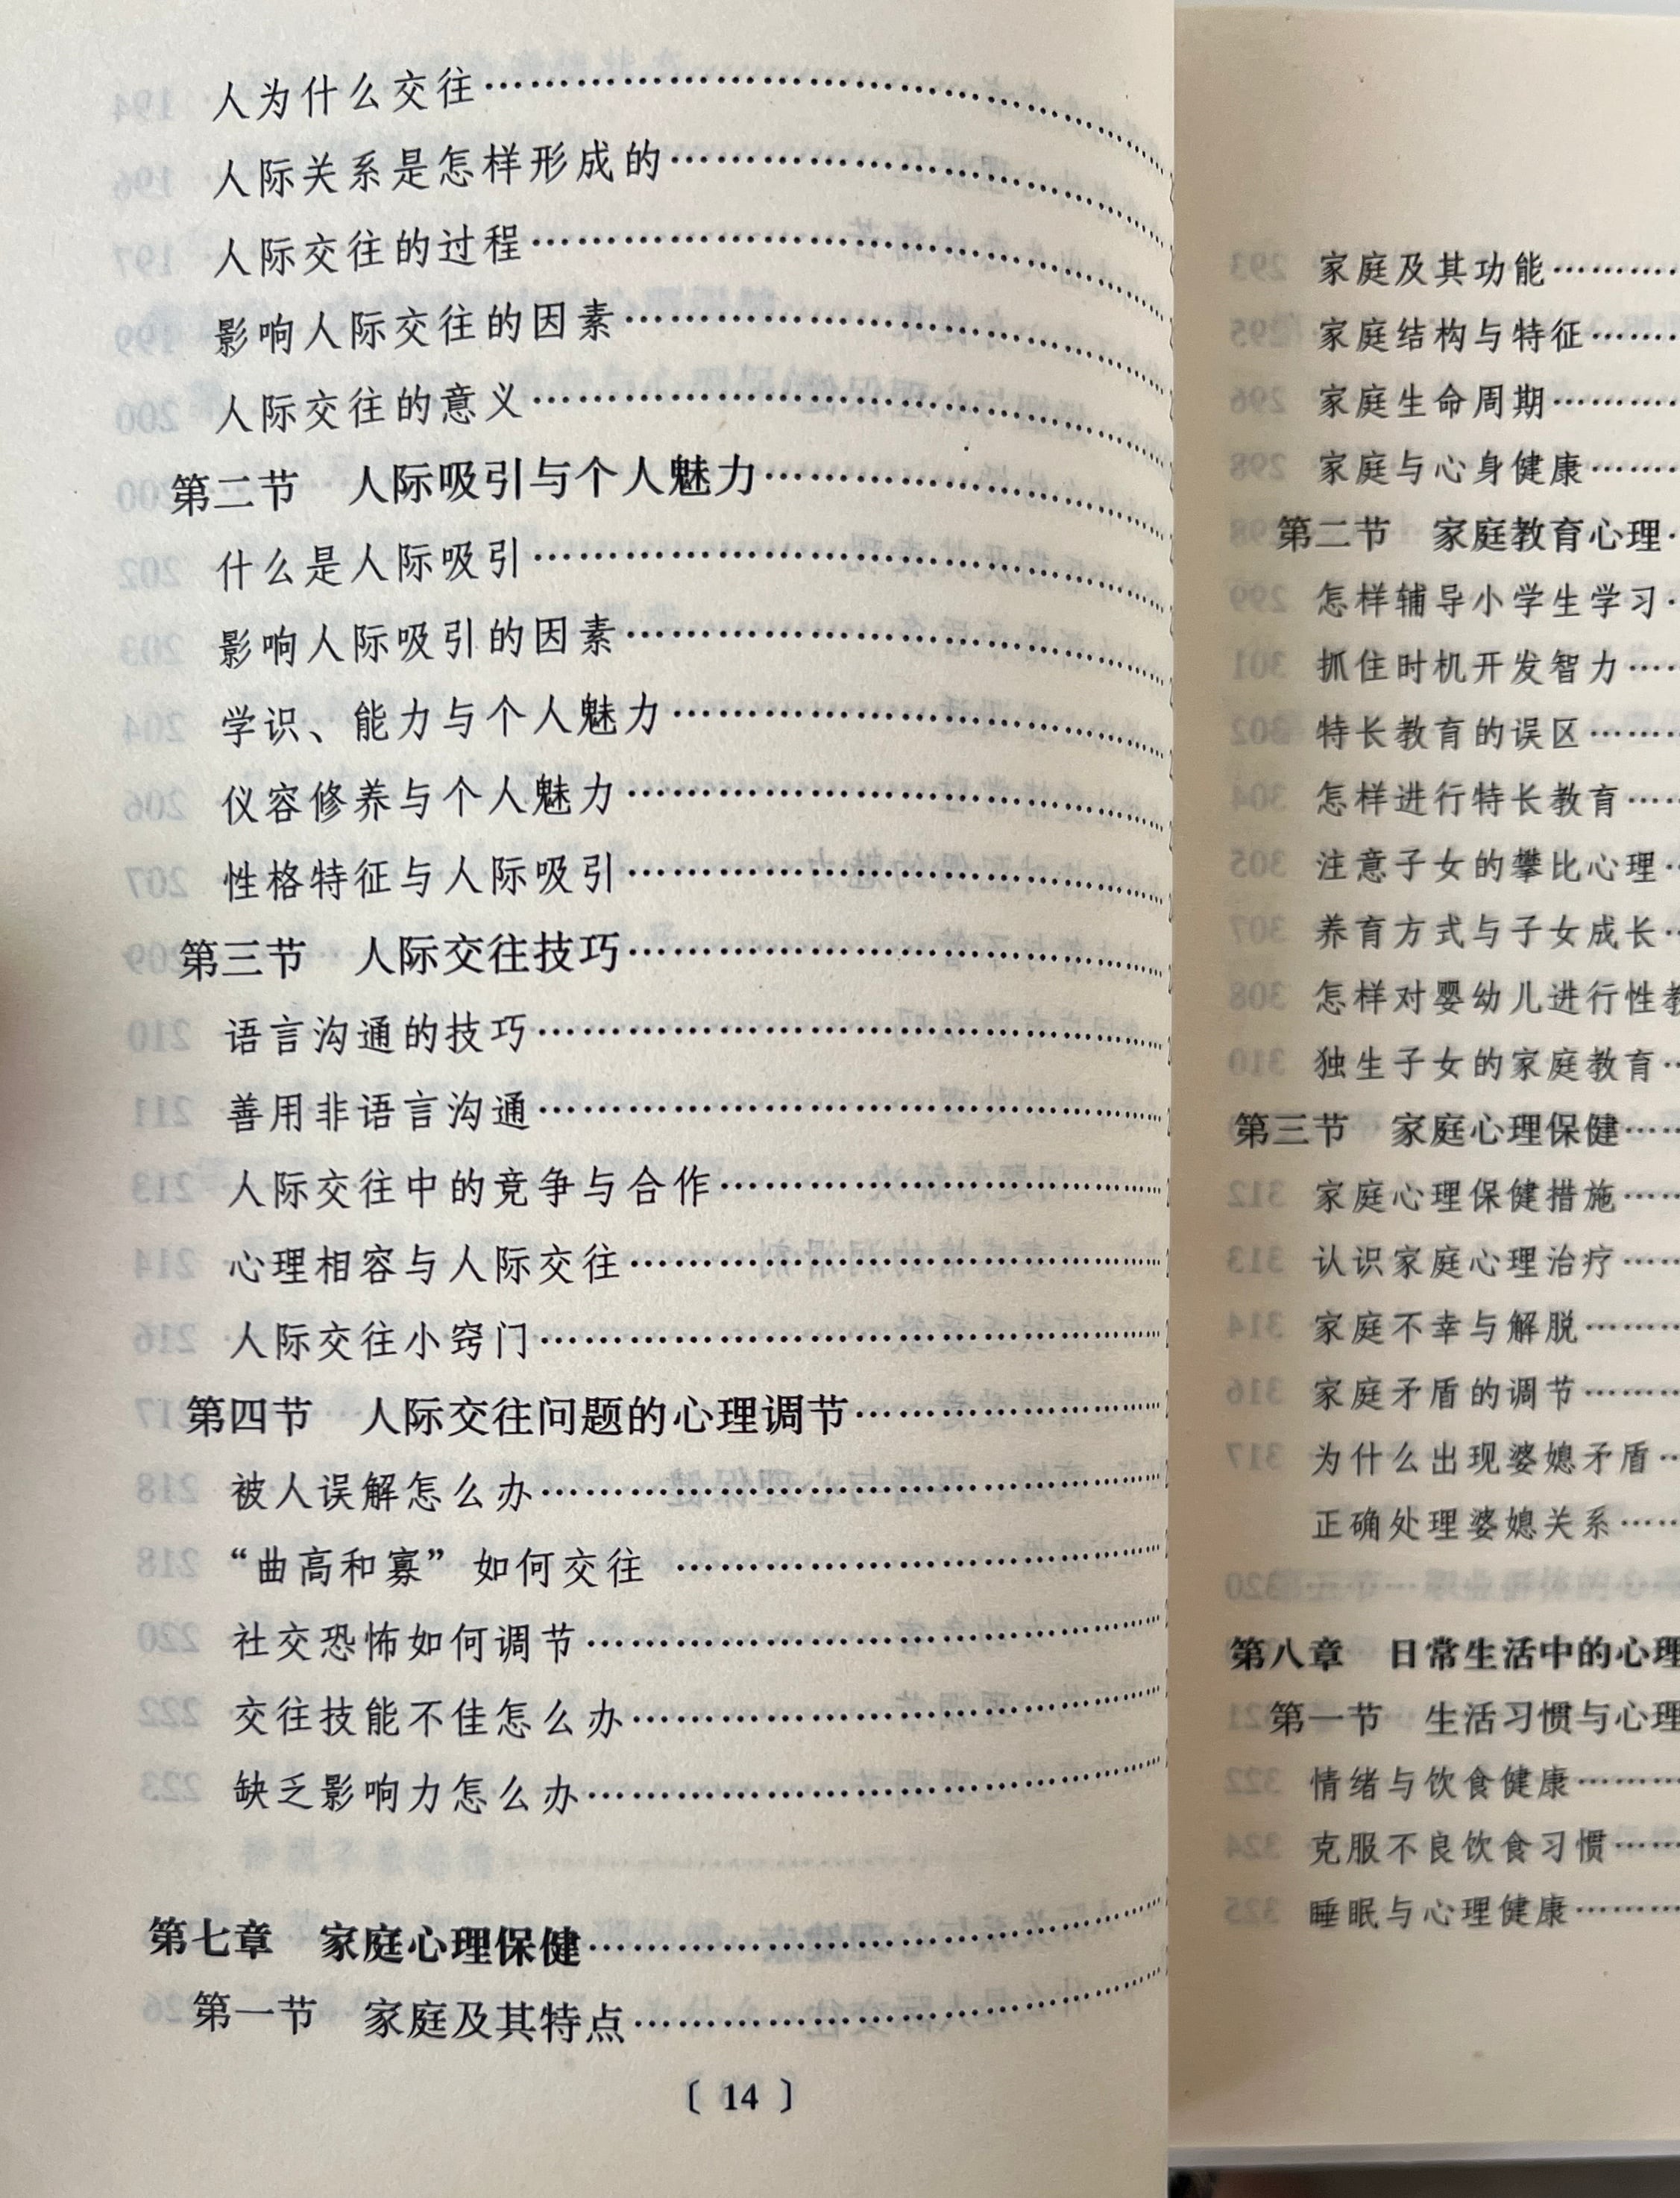 人为什么交往……………………
人际关系是怎样形成的……………………
人际交往的过程……………………
影响人际交往的因素……………………
人际交往的意义……………………
第二节 人际吸引与个人魅力……………………
什么是人际吸引……………………
影响人际吸引的因素……………………
学识、能力与个人魅力……………………
仪容修养与个人魅力……………………
性格特征与人际吸引……………………
第三节 人际交往技巧……………………
语言沟通的技巧……………………
善用非语言沟通……………………
人际交往中的竞争与合作……………………
心理相容与人际交往……………………
人际交往小窍门……………………
第四节 人际交往问题的心理调节……………………
被人误解怎么办……………………
“曲高和寡”如何交往 ……………………
社交恐怖如何调节……………………
交往技能不佳怎么办……………………
缺乏影响力怎么办……………………
第七章 家庭心理保健……………………
第一节 家庭及其特点……………………
〔 14 〕
家庭及其功能………
家庭结构与特征………
家庭生命周期………
家庭与心身健康………
第二节 家庭教育心理…
怎样辅导小学生学习…
抓住时机开发智力……
特长教育的误区………
怎样进行特长教育……
注意子女的攀比心理…
养育方式与子女成长…
怎样对婴幼儿进行性教
独生子女的家庭教育…
第三节 家庭心理保健……
家庭心理保健措施……
认识家庭心理治疗……
家庭不幸与解脱………
家庭矛盾的调节………
为什么出现婆媳矛盾…
正确处理婆媳关系……
第八章 日常生活中的心理
第一节 生活习惯与心理
情绪与饮食健康………
克服不良饮食习惯……
睡眠与心理健康………